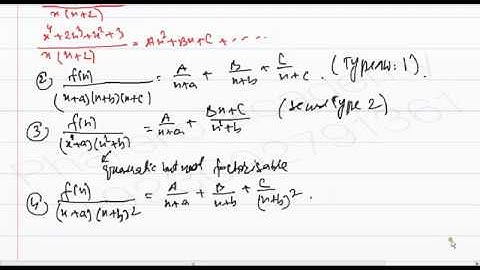 x(x+2)
x⁴+2x³+x²+3 / x(x+2) = Ax²+Bx+C + .....
② f(x) / (x+a)(x+b)(x+c) = A/x+a + B/x+b + C/x+c . (Type no: 1)
③ f(x) / (x+a)(x²+b) = A/x+a + Bx+C / x²+b (Type 2)
quadratic but not factorisable
④ f(x) / (x+a)(x+b)² = A/x+a + B/x+b + C/(x+b)² .